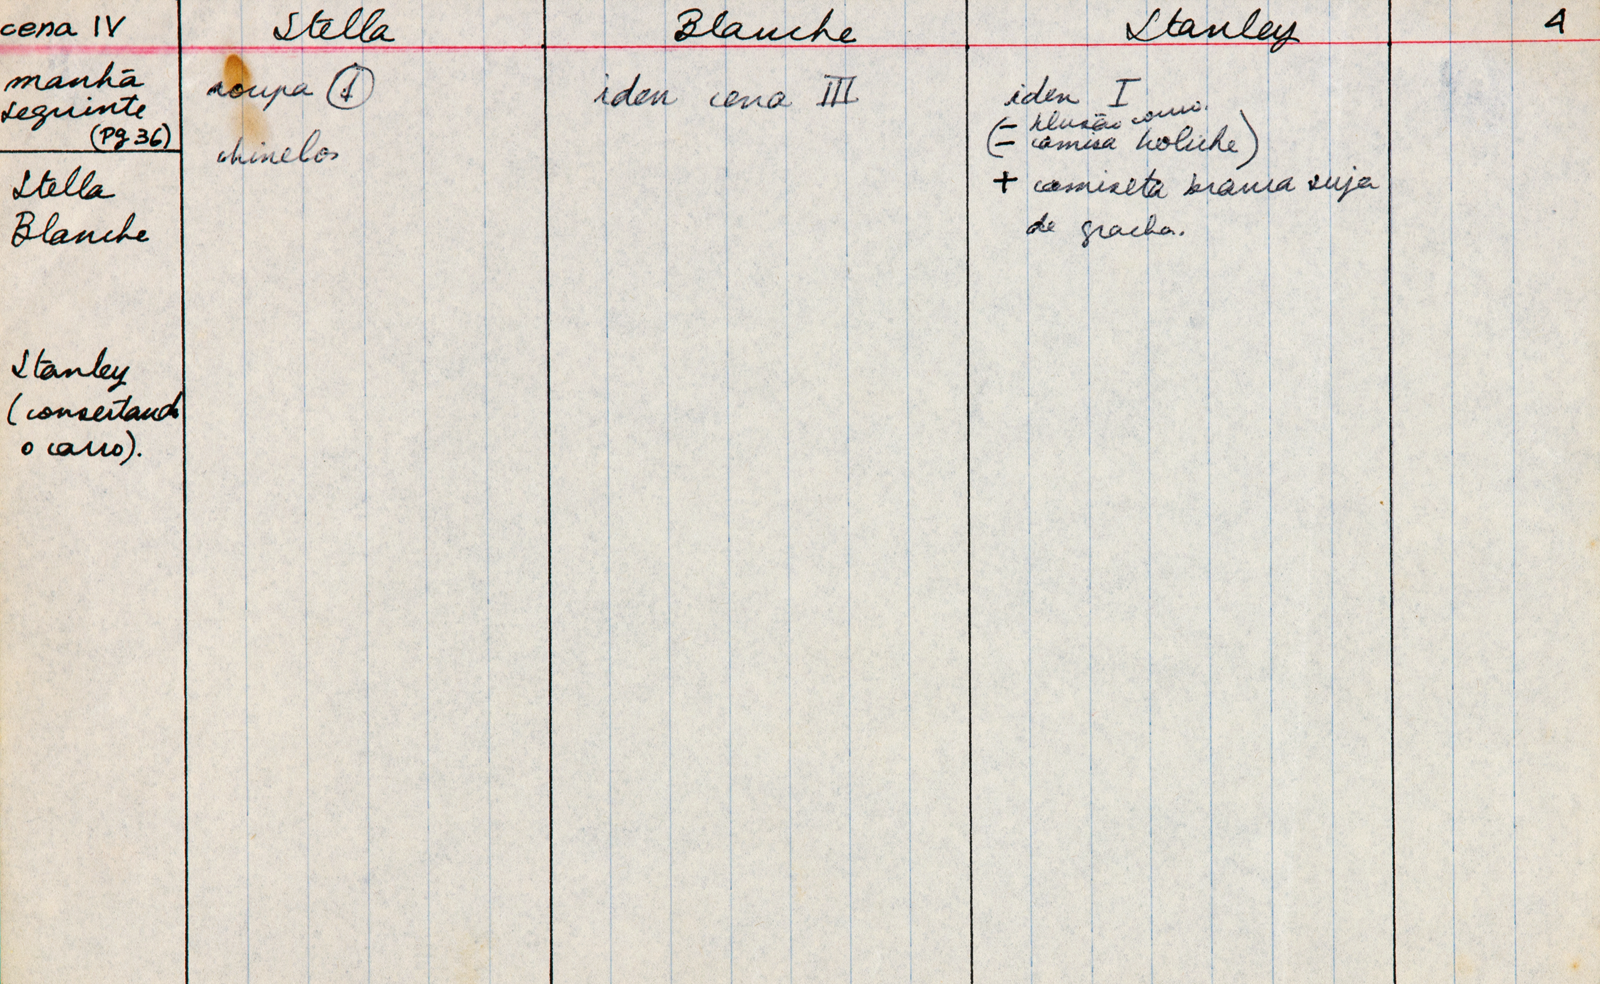 cena IV
Stella
Blanche
Stanley
4
manhã
seguinte
(pg 36)
Stella
Blanche
Stanley
(consertando
o carro).
roupa ①
chinelos
iden cena III
iden I
(- blusão couro.
- camisa boliche)
+ camiseta branca suja
de gracha.